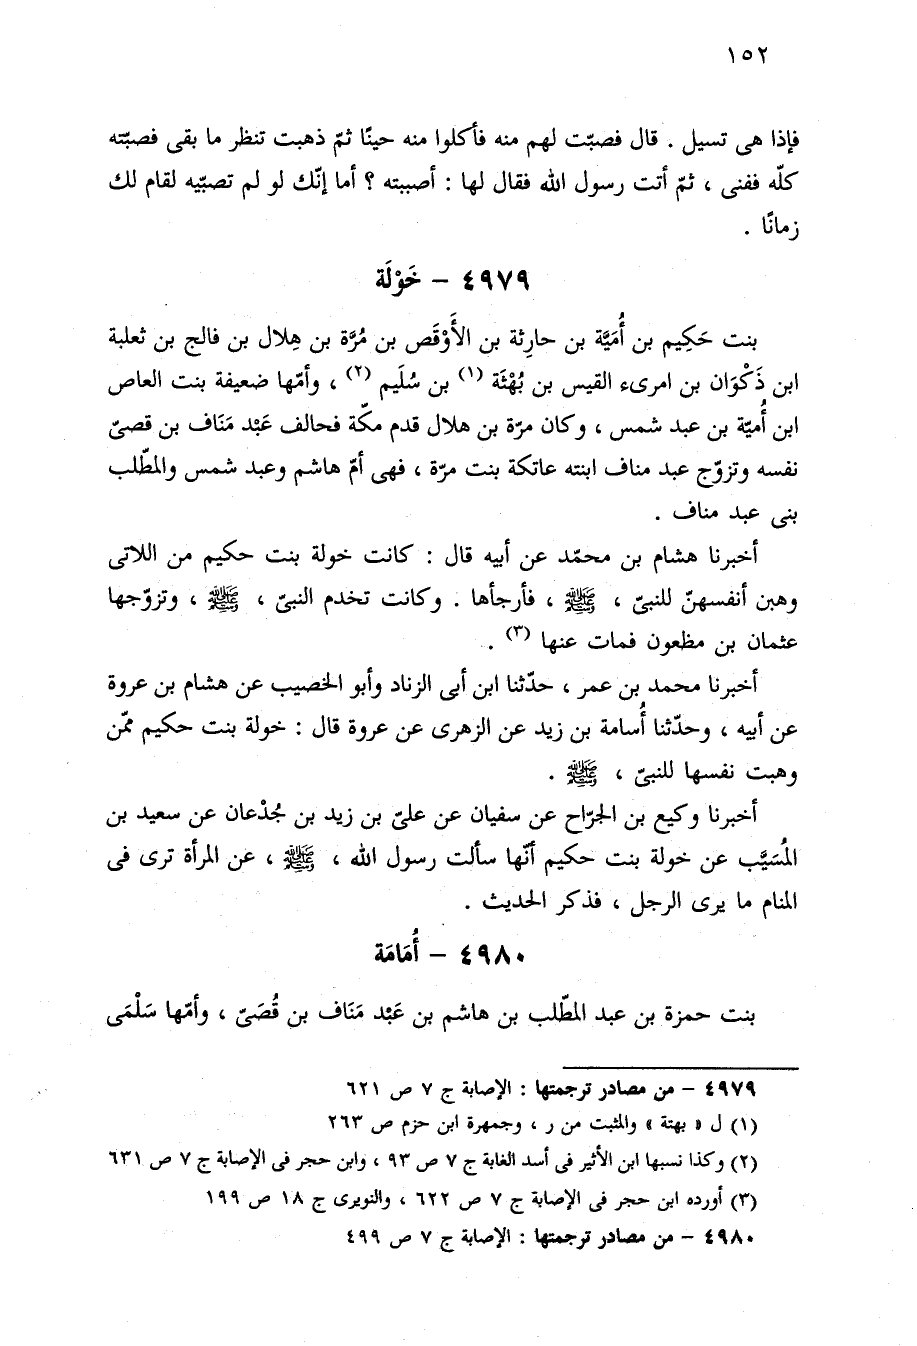 ١٥٢
فإذا هى تسيل . قال فصبّت لهم منه فأكلوا منه حينًا ثمّ ذهبت تنظر ما بقى فصبّته
كلّه ففنى ، ثمّ أتت رسول الله فقال لها : أصببته ؟ أما إنّك لو لم تصبّيه لقام لك
زمانًا .
٤٩٧٩ – خَوْلَة
بنت حَكِيم بن أُمَيَّة بن حارِثة بن الأَوْقَص بن مُرَّة بن هِلال بن فالج بن ثعلبة
ابن ذَكْوَان بن امرىء القيس بن بُهْثَة (١) بن سُلَيم (٢) ، وأمّها ضعيفة بنت العاص
ابن أُميّة بن عبد شمس ، وكان مرّة بن هلال قدم مكّة فحالف عَبْد مَنَاف بن قصىّ
نفسه وتزوّج عبد مناف ابنته عاتكة بنت مرّة ، فهى أمّ هاشم وعبد شمس والمطّلب
بنى عبد مناف .
أخبرنا هشام بن محمّد عن أبيه قال : كانت خولة بنت حكيم من اللاتى
وهبن أنفسهنّ للنبىّ ، ﷺ ، فأرجأها . وكانت تخدم النبىّ ، ﷺ ، وتزوّجها
عثمان بن مظعون فمات عنها (٣) .
أخبرنا محمد بن عمر ، حدّثنا ابن أبى الزناد وأبو الخصيب عن هشام بن عروة
عن أبيه ، وحدّثنا أُسامة بن زيد عن الزهرى عن عروة قال : خولة بنت حكيم ممّن
وهبت نفسها للنبىّ ، ﷺ .
أخبرنا وكيع بن الجرّاح عن سفيان عن علىّ بن زيد بن جُدْعان عن سعيد بن
المُسَيَّب عن خولة بنت حكيم أنّها سألت رسول الله ، ﷺ ، عن المرأة ترى فى
المنام ما يرى الرجل ، فذكر الحديث .
٤٩٨٠ – أُمَامَة
بنت حمزة بن عبد المطّلب بن هاشم بن عَبْد مَنَاف بن قُصَىّ ، وأمّها سَلْمَى
٤٩٧٩ – من مصادر ترجمتها : الإصابة ج ٧ ص ٦٢١
(١) ل « بهتة » والمثبت من ر ، وجمهرة ابن حزم ص ٢٦٣
(٢) وكذا نسبها ابن الأثير فى أسد الغابة ج ٧ ص ٩٣ ، وابن حجر فى الإصابة ج ٧ ص ٦٣١
(٣) أورده ابن حجر فى الإصابة ج ٧ ص ٦٢٢ ، والنويرى ج ١٨ ص ١٩٩
٤٩٨٠ – من مصادر ترجمتها : الإصابة ج ٧ ص ٤٩٩